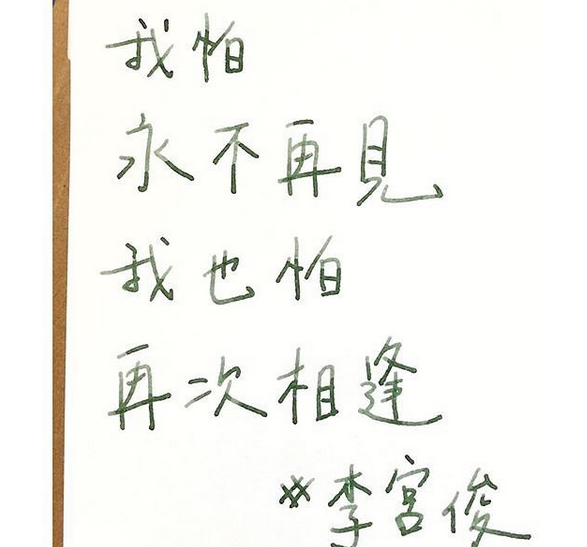 我怕
永不再見
我也怕
再次相逢
※李宮俊